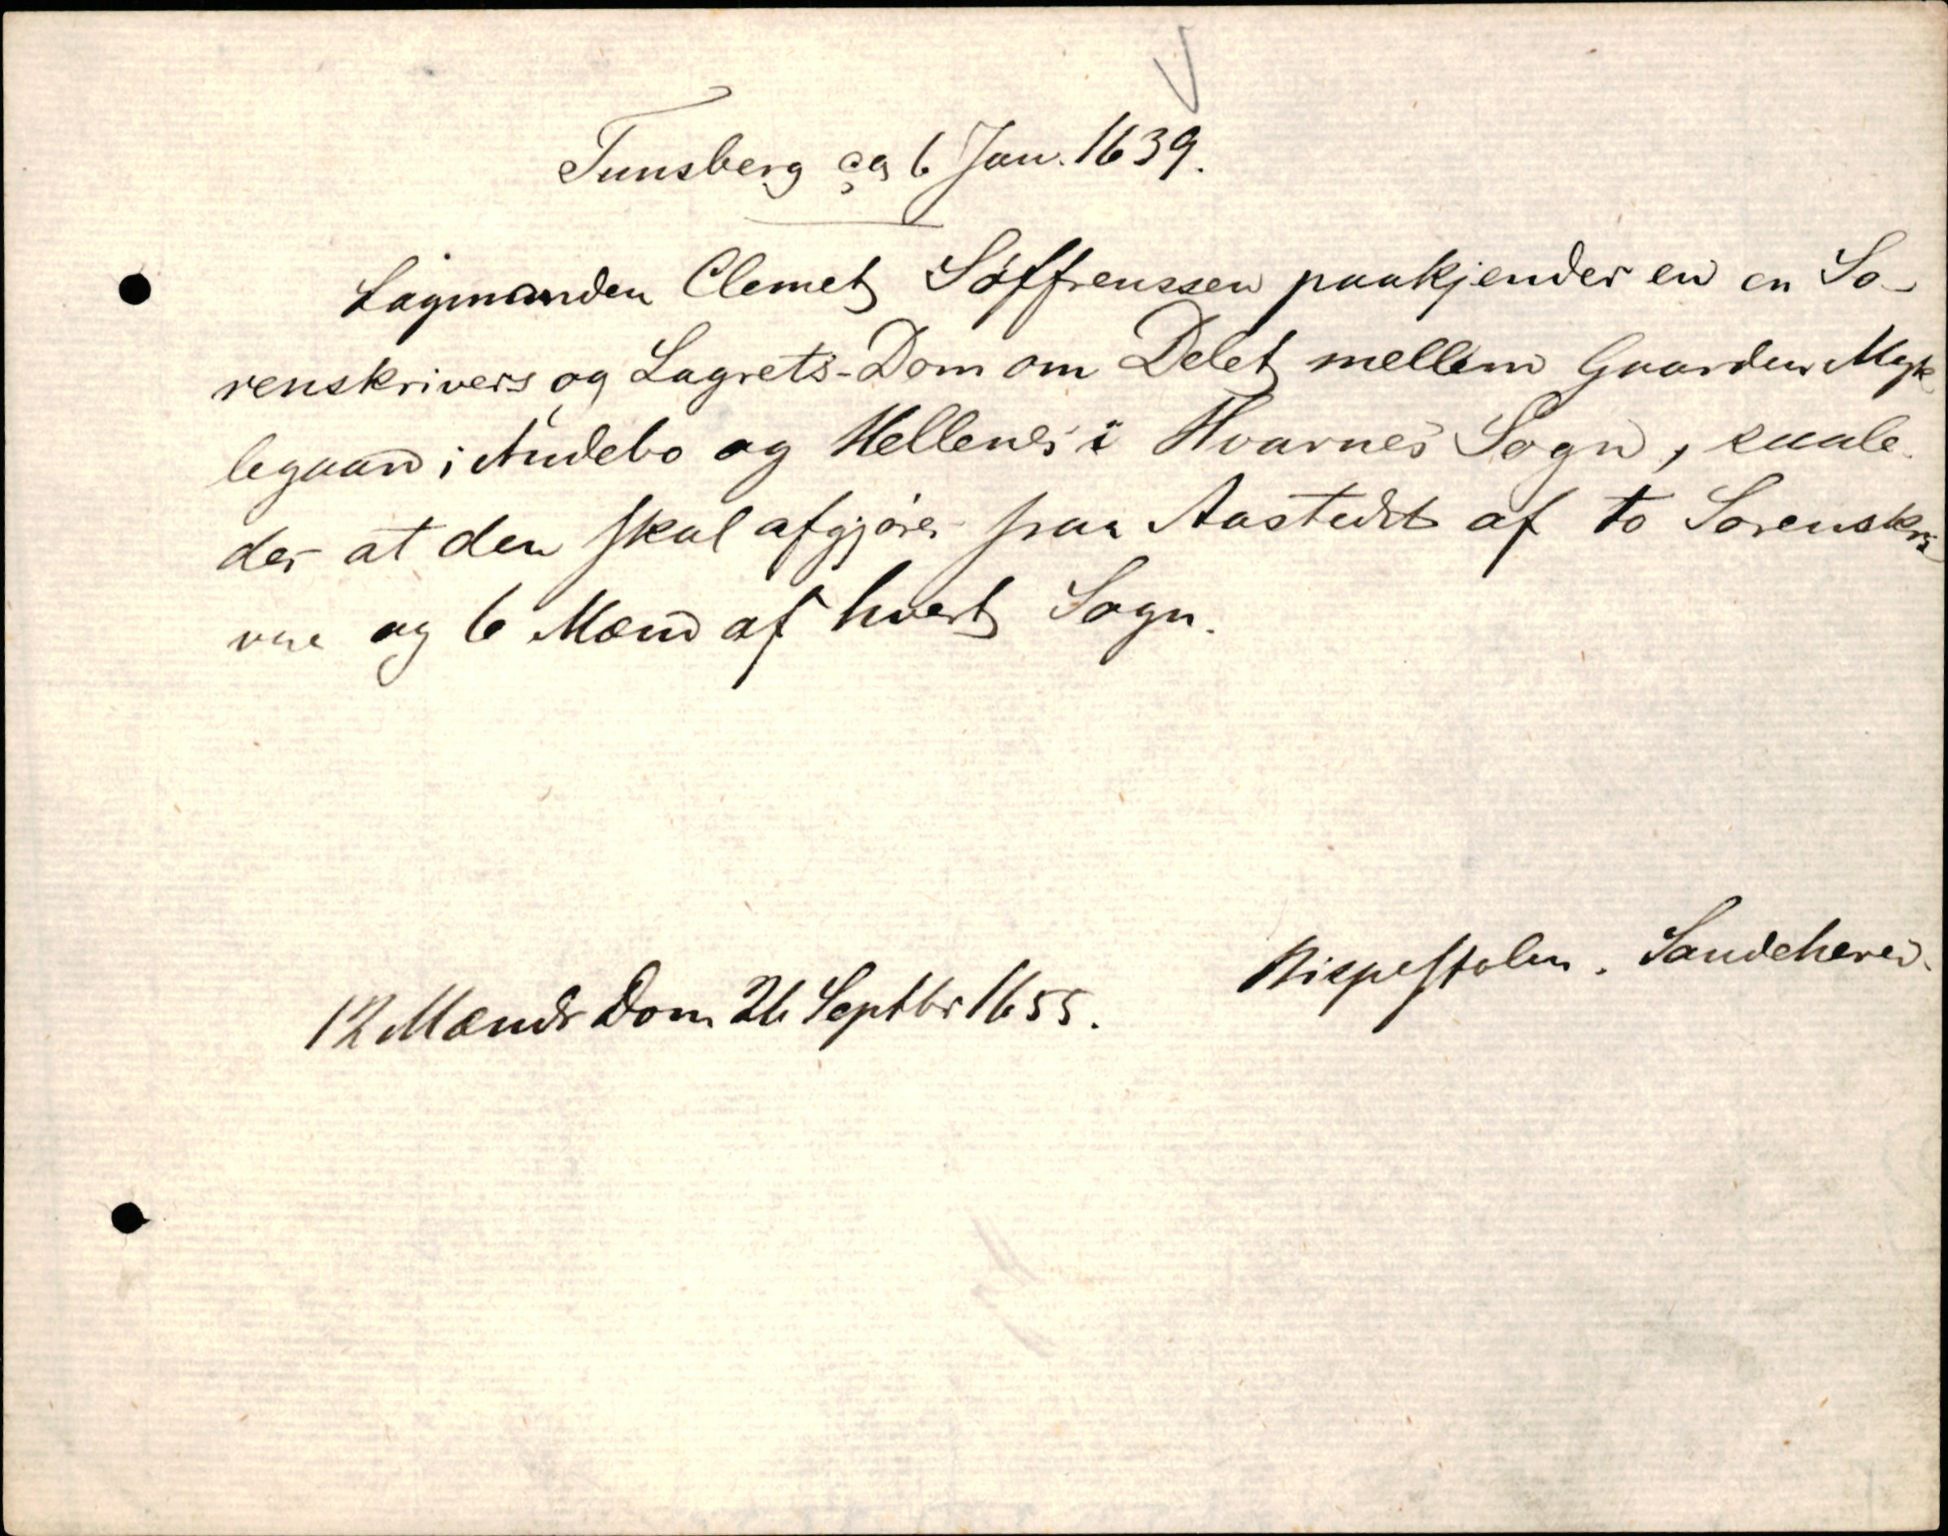 Tunsberg ca 6 Jan. 1639.
Lagmanden Clemet Søffrenssen paakjender en en So-
renskrivers og Lagrets-Dom om Delet mellem Gaarden Myk
legaard i Andebo og Hellenes i Hvarnes Sogn, saale-
des at den skal afgjøres paa Aastedet af to Sorenskri
vere og 6 Mænd af hvert Sogn.
Bispestolen. Sandeherred.
12 Mænds Dom 26 Septbr 1655.